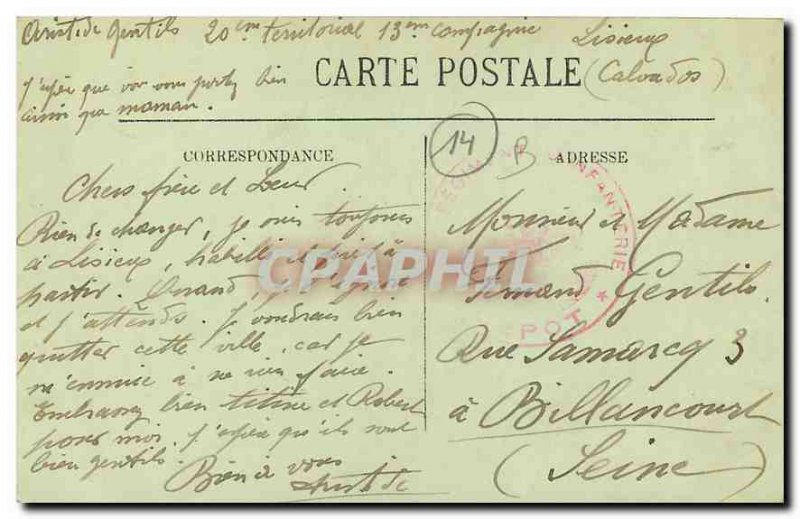 Aristide Gentils 20em territorial 13em compagnie Lisieux
(Calvados)
J'espère que vous vous portez bien
ainsi que maman.
CARTE POSTALE
14
B
CORRESPONDANCE
ADRESSE
Chers frère et Sœur.
Rien de changer, je suis toujours
à Lisieux, habillé et prêt à
partir. Quand,
et j'attends. Je voudrais bien
quitter cette ville, car je
m'ennuie à ne rien faire.
Embrassez bien titine et Robert
pour moi. J'espère qu'ils sont
bien gentils.
Bien à vous
Aristide
Monsieur et Madame
Fernand Gentils.
Rue Samarcq 3
à Billancourt
(Seine)
INFANTERIE
CPAPHIL